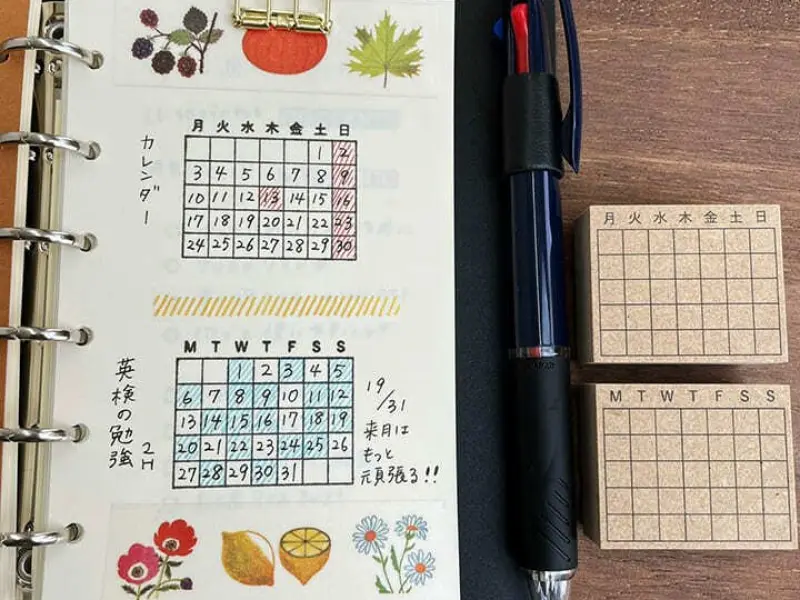 月 火 水 木 金 土 日
1 2
3 4 5 6 7 8 9
10 11 12 13 14 15 16
17 18 19 20 21 22 23
24 25 26 27 28 29 30
カレンダー
M T W T F S S
1 2 3 4 5
6 7 8 9 10 11 12
13 14 15 16 17 18 19
20 21 22 23 24 25 26
27 28 29 30 31
英検の勉強 2H
19/31
来月は
もっと
頑張る!!
月 火 水 木 金 土 日
M T W T F S S